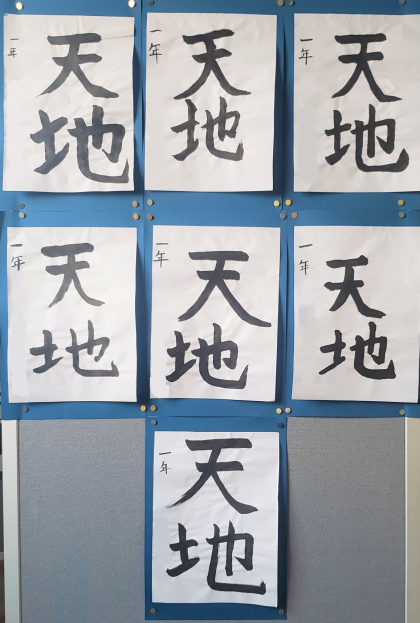 一年
天地
一年
天地
一年
天地
一年
天地
一年
天地
一年
天地
一年
天地